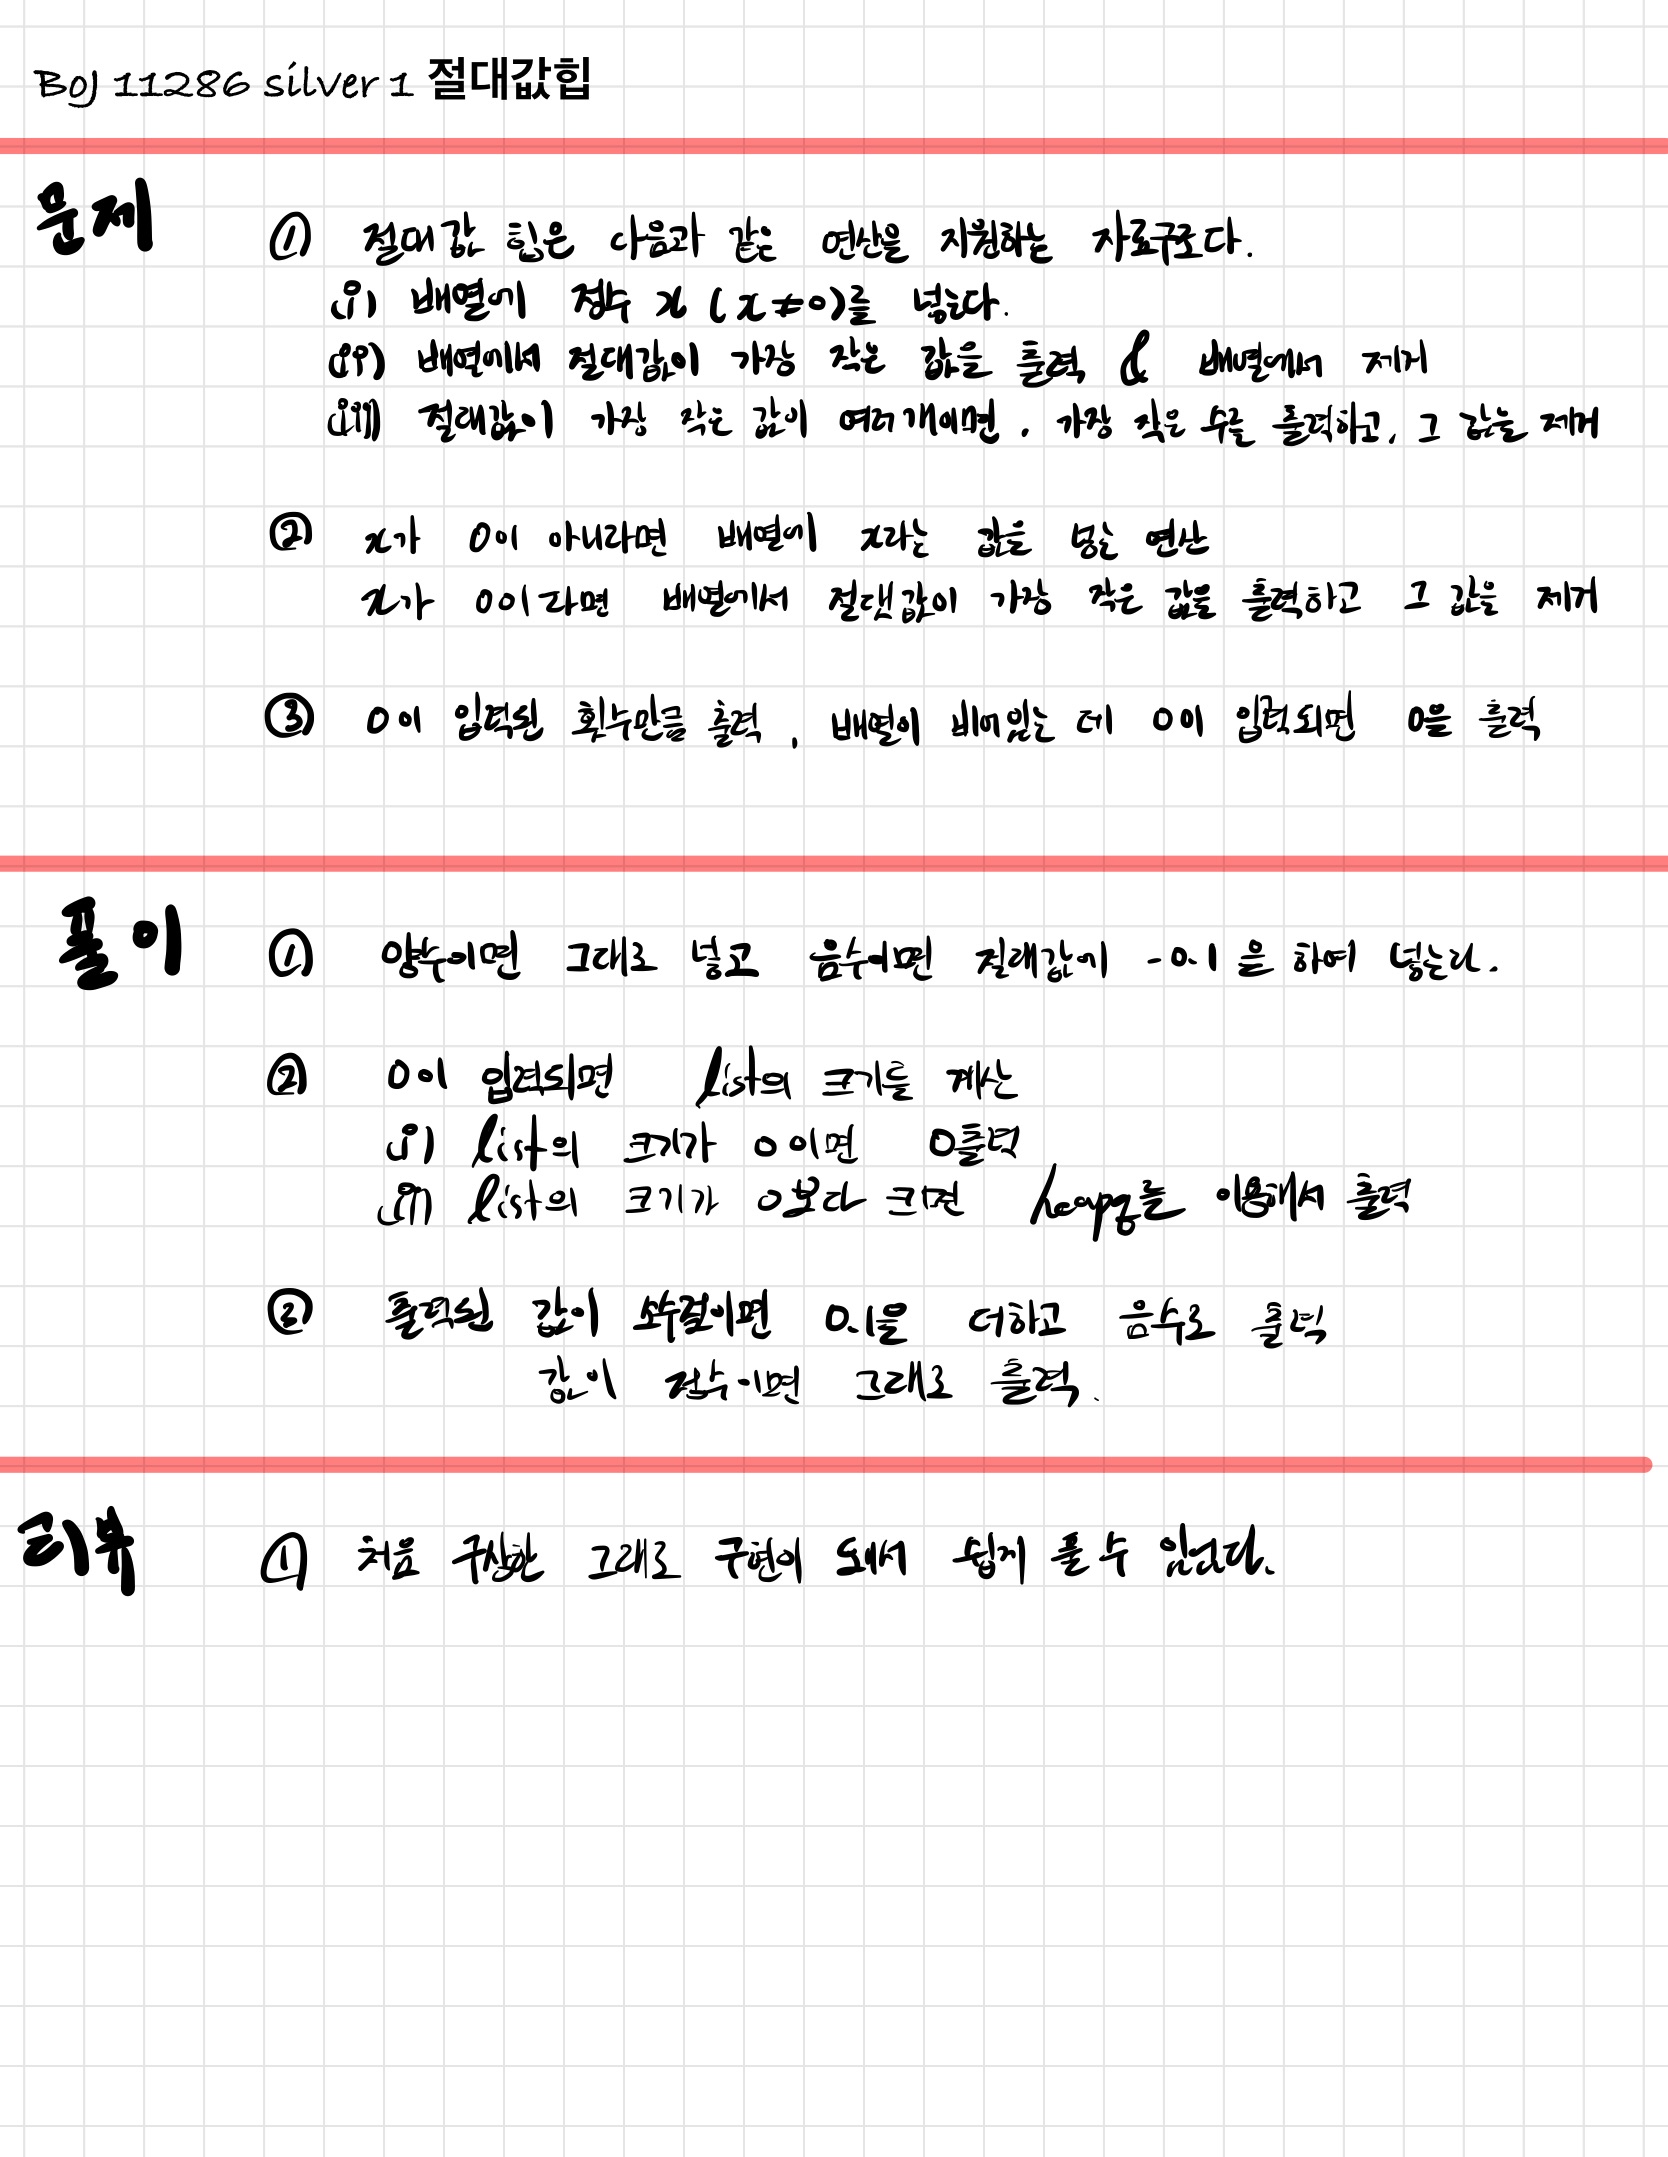 BOJ 11286 silver 1 절대값힙
문제
① 절대값 힙은 다음과 같은 연산을 지원하는 자료구조다.
(i) 배열에 정수 x (x≠0)를 넣는다.
(ii) 배열에서 절대값이 가장 작은 값을 출력 & 배열에서 제거
(iii) 절대값이 가장 작은 값이 여러개이면, 가장 작은 수를 출력하고, 그 값을 제거
② x가 0이 아니라면 배열에 x라는 값을 넣는 연산
x가 0이라면 배열에서 절댓값이 가장 작은 값을 출력하고 그 값을 제거
③ 0이 입력된 횟수만큼 출력, 배열이 비어있는 데 0이 입력되면 0을 출력
풀이
① 양수이면 그대로 넣고 음수이면 절대값에 -0.1을 하여 넣는다.
② 0이 입력되면 list의 크기를 계산
(i) list의 크기가 0이면 0출력
(ii) list의 크기가 0보다 크면 heapq를 이용해서 출력
② 출력된 값이 소수점이면 0.1을 더하고 음수로 출력
값이 정수이면 그대로 출력.
리뷰
① 처음 구상한 그대로 구현이 돼서 쉽게 풀 수 있었다.